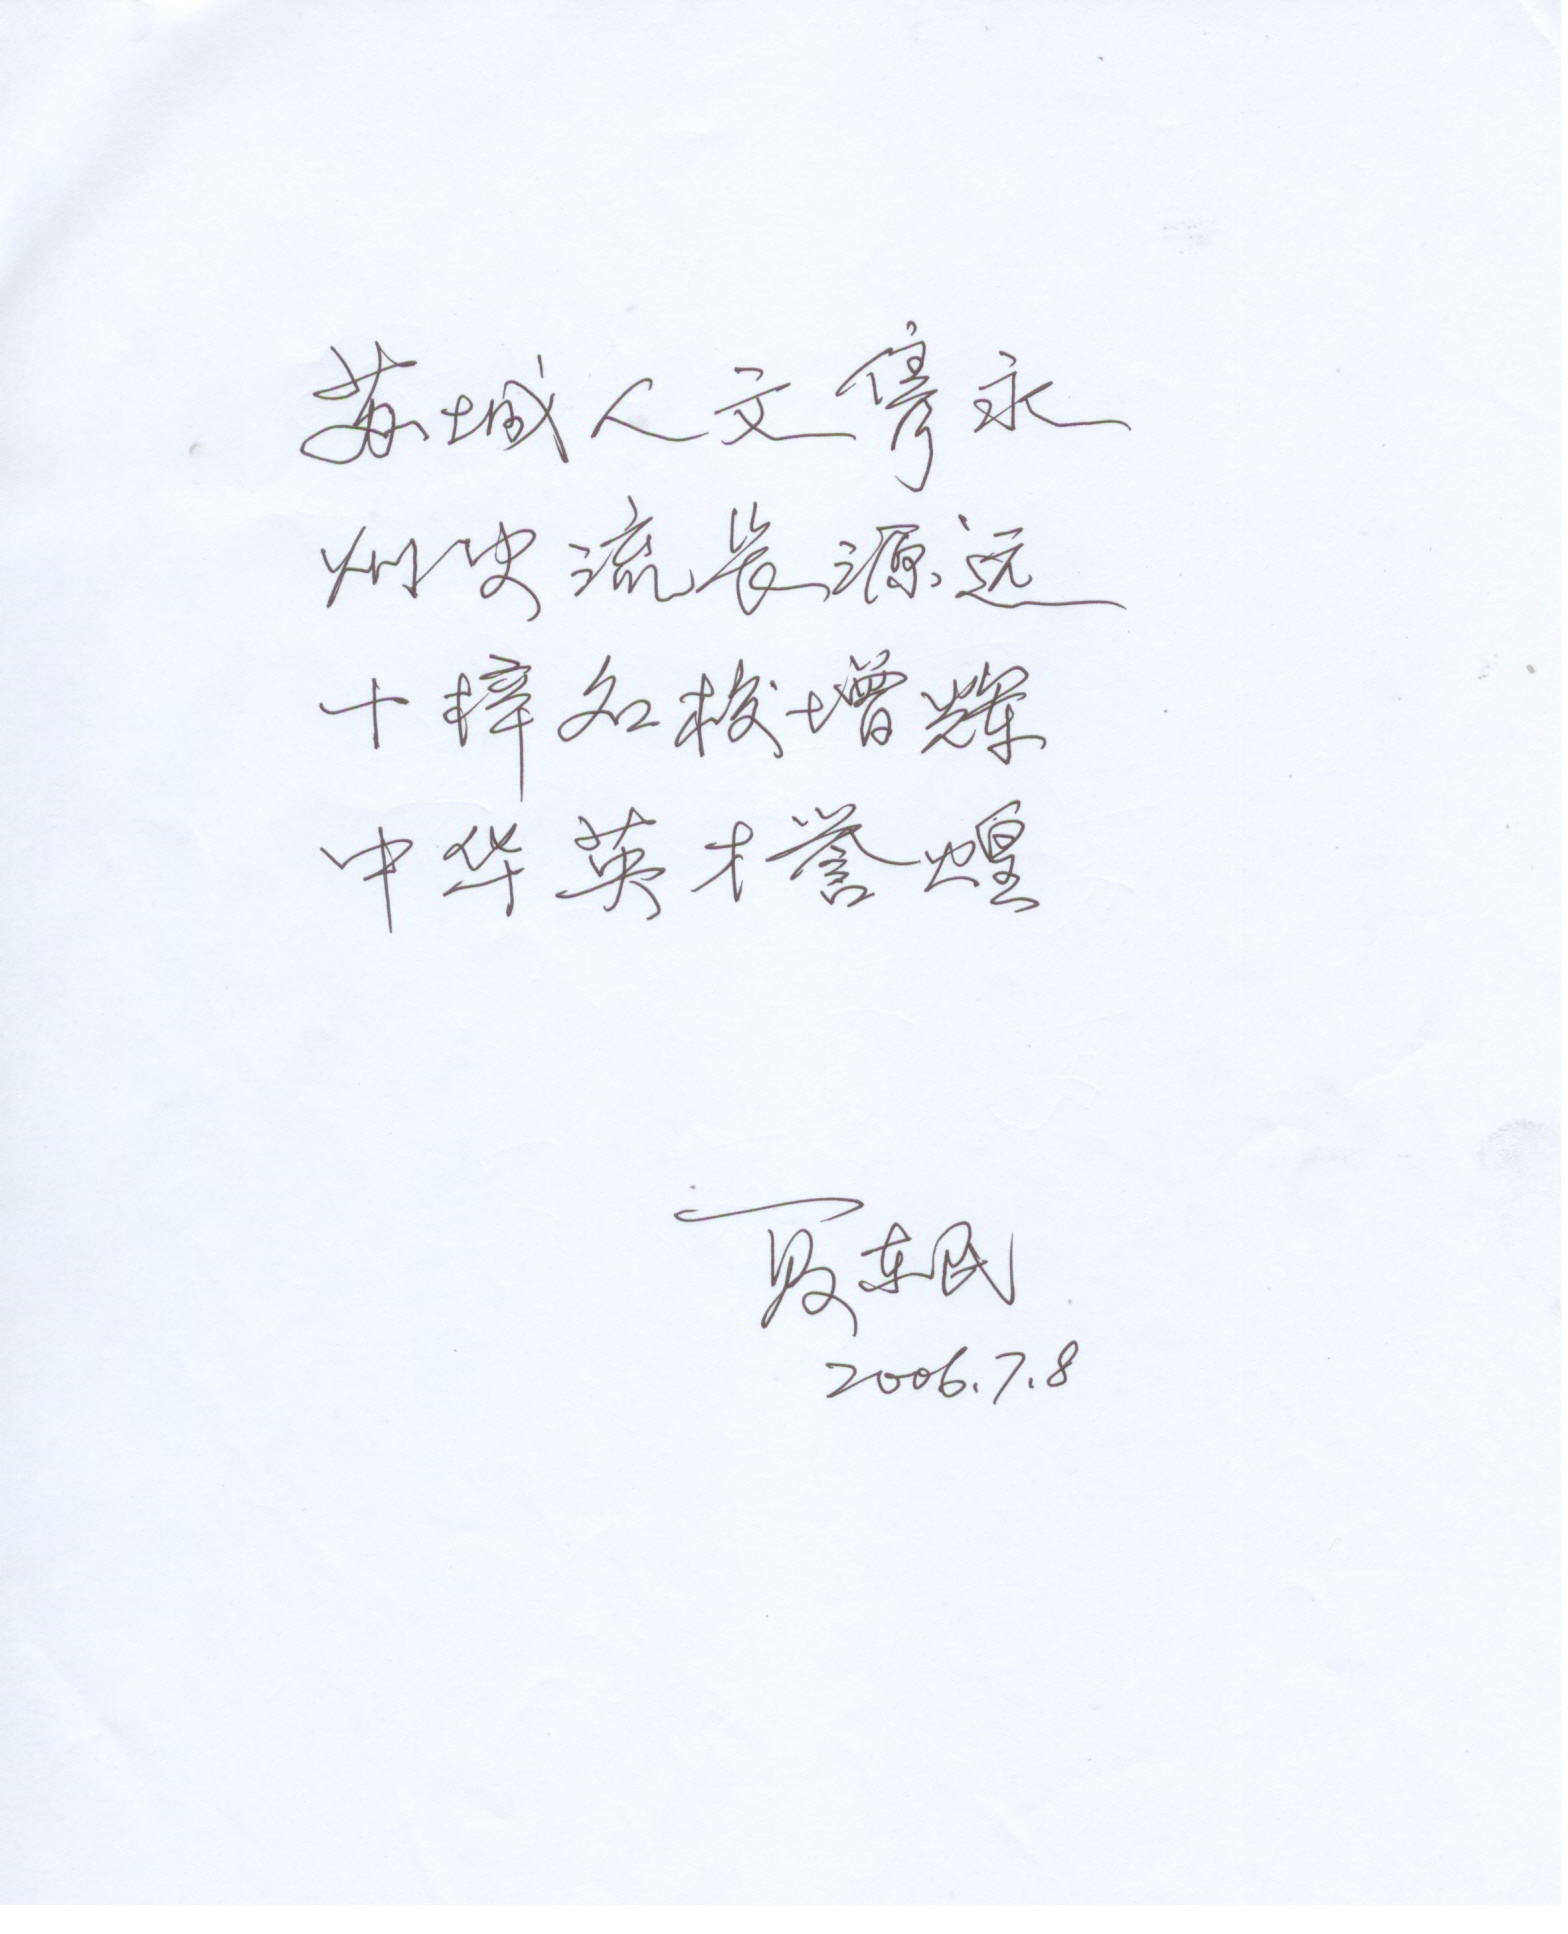 苏城人文隽永
州史流长源远
十梓名校增辉
中华英才誉煌
夏东民
2006.7.8